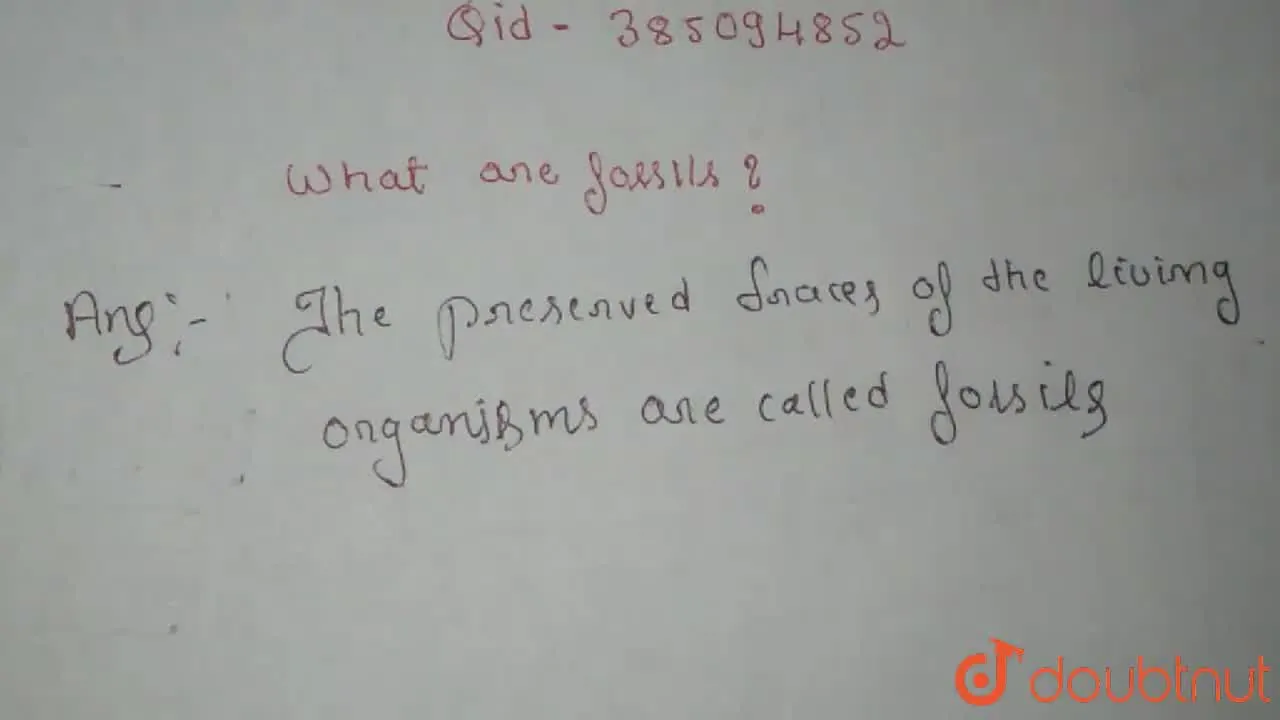 Qid - 385094852
- What are fossils?
Ans:- The preserved traces of the living
organisms are called fossils
doubtnut